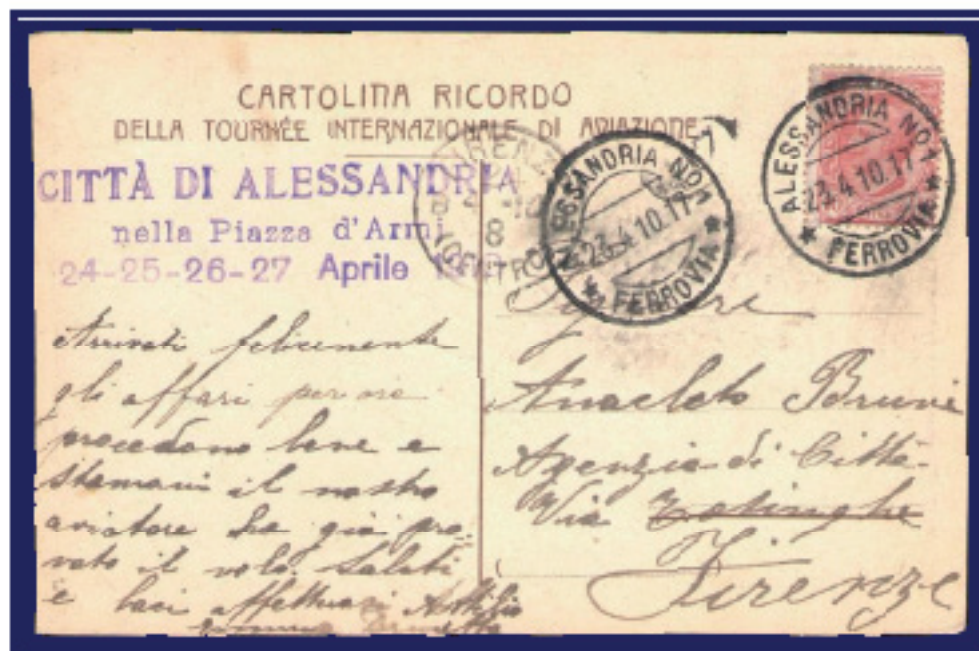 CARTOLINA RICORDO
DELLA TOURNÉE INTERNAZIONALE DI AVIAZIONE
CITTÀ DI ALESSANDRIA
nella Piazza d'Armi
24-25-26-27 Aprile
ALESSANDRIA NO1
23.4.10.17
* FERROVIA *
SSANDRIA NO1
23.4.10.17
* FERROVIA *
8
Arrivati felicemente
gli affari per ora
procedono bene e
stamani il nostro
aviatore ha già pro=
vato il volo. Saluti
e baci affettuosi Attilio
Anacleto Bruni
Agenzia di Città
Via
Firenze